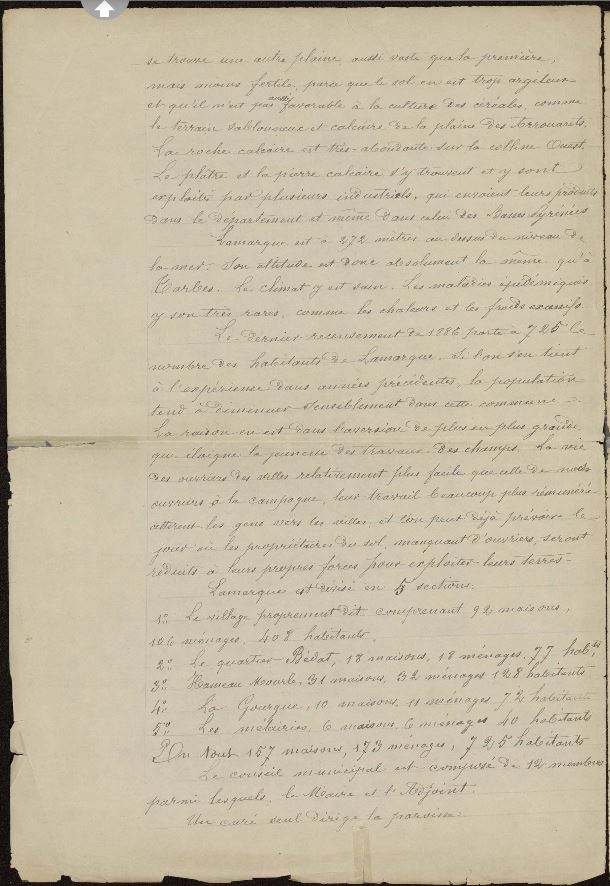 se trouve une autre plaine, aussi vaste que la première,
mais moins fertile, parce que le sol en est trop argileux
et qu'il n'est pas aussi favorable à la culture des céréales, comme
le terrain sablonneux et calcaire de la plaine des Arrouarets.
La roche calcaire est très-abondante sur la colline Ouest.
Le plâtre et la pierre calcaire s'y trouvent et y sont
exploités par plusieurs industriels, qui envoient leurs produits
dans le département et même dans celui des Basses Pyrénées
Lamarque est à 272 mètres au dessus du niveau de
la mer. Son altitude est donc absolument la même qu'à
Tarbes. Le climat y est sain. Les maladies épidémiques
y son très rares, comme les chaleurs et les froids excessifs.
Le dernier recensement de 1886 porte à 725 le
nombre des habitants de Lamarque. Si l'on s'en tient
à l'expérience dans années précédentes, la population
tend à diminuer sensiblement dans cette commune.
La raison en est dans l'aversion de plus en plus grande
qui éloigne la jeunesse des travaux des champs. La vie
des ouvriers des villes relativement plus facile que celle de nos
ouvriers à la campagne, leur travail beaucoup plus rémunéré
attirent les gens vers les villes, et l'on peut déjà prévoir le
jour où les propriétaires du sol, manquant d'ouvriers, seront
réduits à leurs propres forces pour exploiter leurs terres.
Lamarque est divisé en 5 sections.
1º Le village proprement dit comprenant 92 maisons,
106 ménages, 408 habitants.
2º Le quartier Bédat, 18 maisons, 18 ménages, 77 habts
3º Hameau Mourle, 31 maisons, 32 ménages 128 habitants
4º La Gourgue, 10 maisons, 11 ménages, 72 habitants
5º Les métairies, 6 maisons, 6 ménages 40 habitants
En tout 157 maisons, 173 ménages, 725 habitants
Le conseil municipal est composé de 12 membres
parmi lesquels, le Maire et l'Adjoint.
Un curé seul dirige la paroisse.